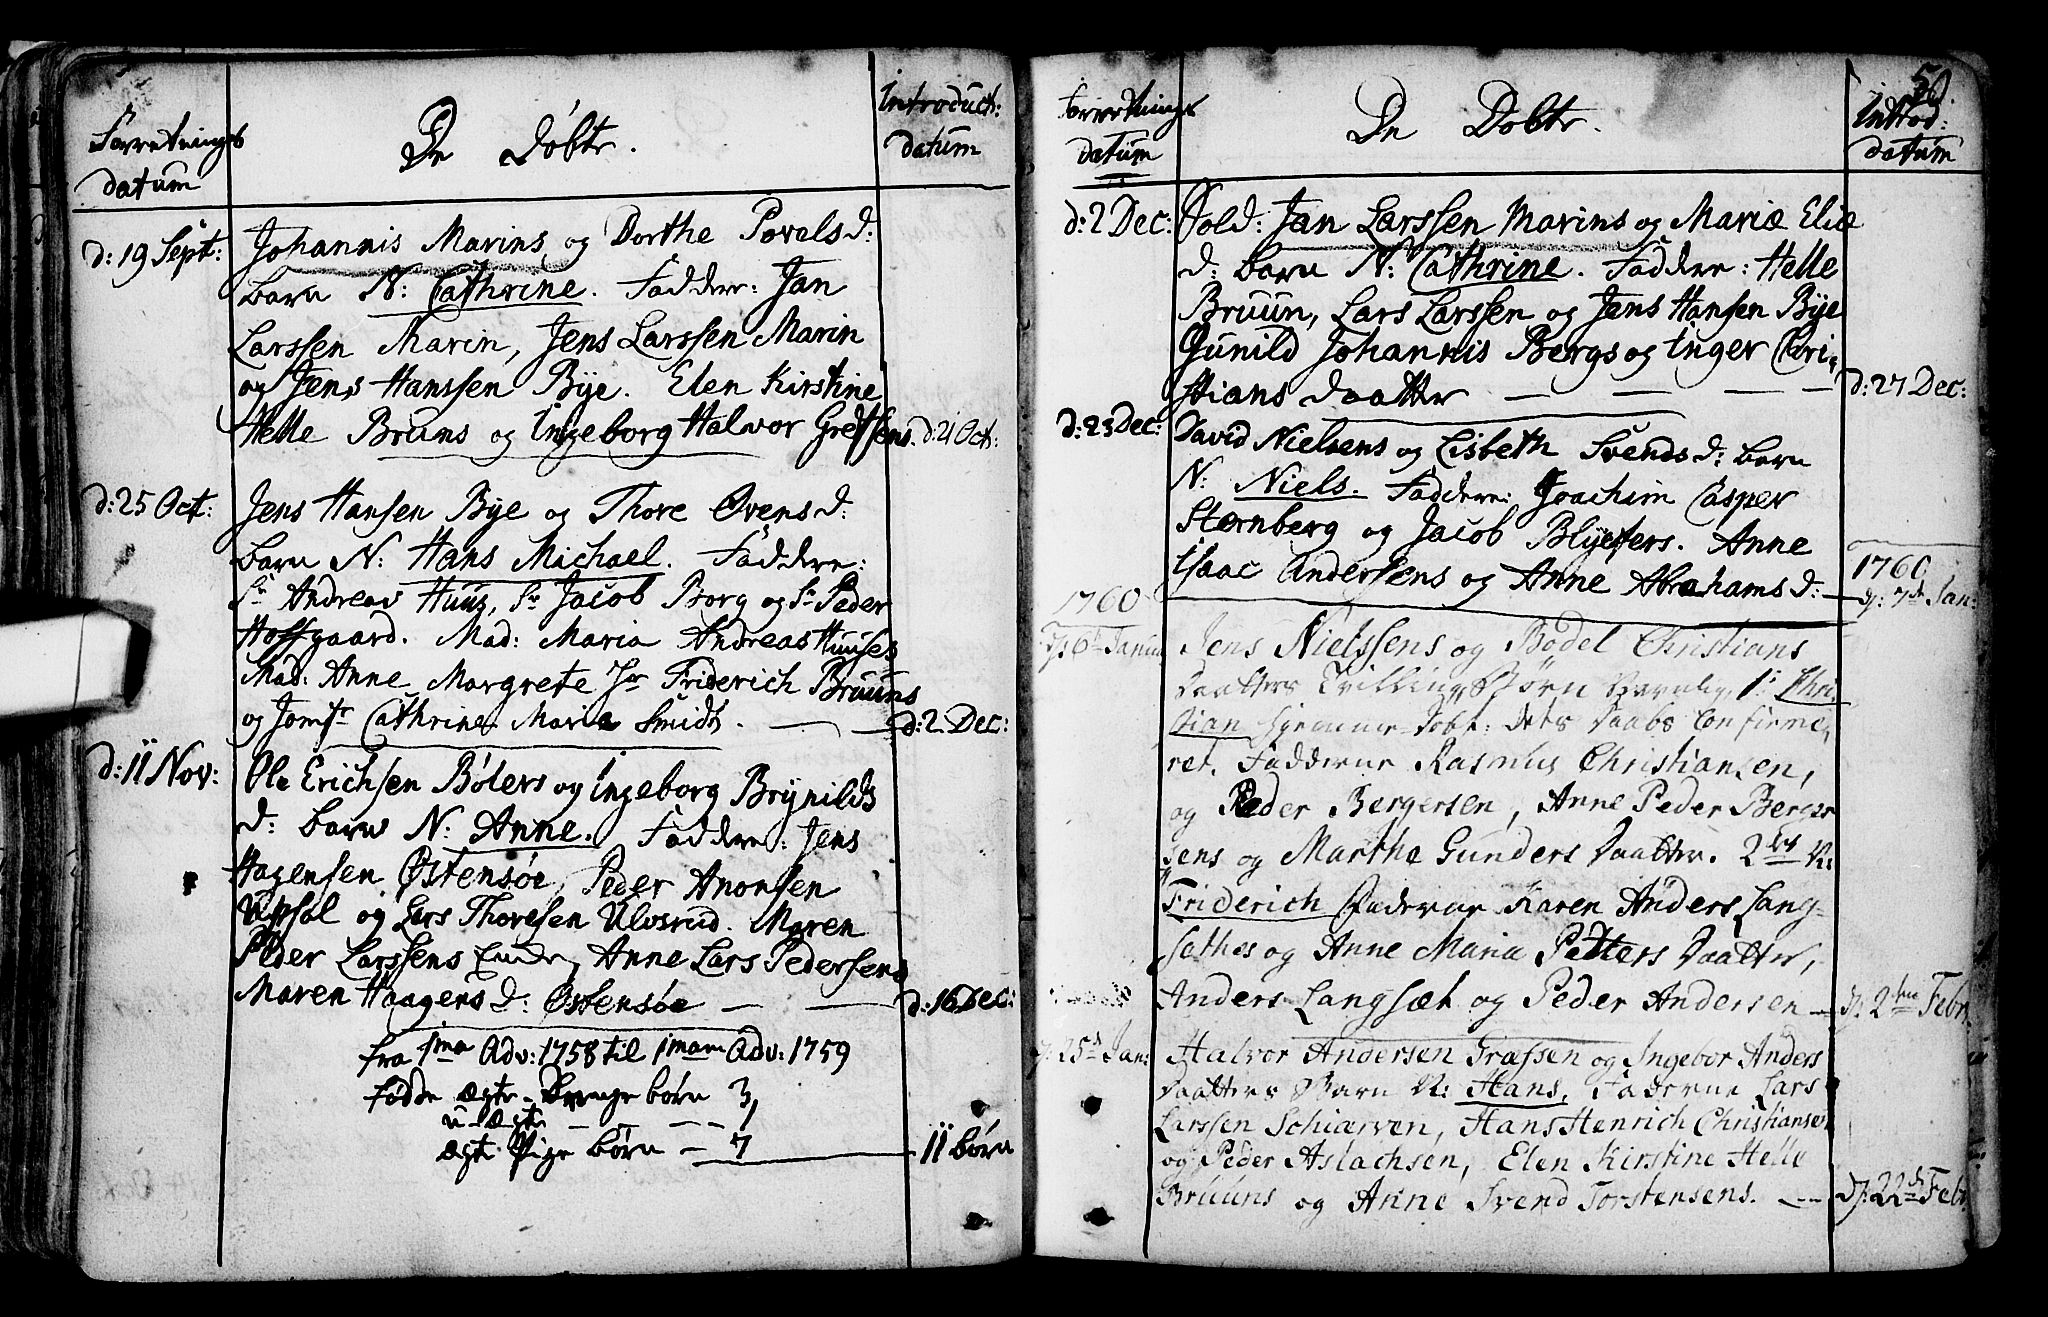 Forretnings
datum
De Døbte.
Introduct:
datum
d: 19 Sept:
Johannis Marins og Dorthe Povels d:
barn N: Cathrine. Faddere: Jan
Larssen Marin, Jens Larssen Marin
og Jens Hanssen Bye. Elen Kirstine
Helle Bruns og Ingeborg Halvor Gretssens.
d: 21 Oct:
d: 25 Oct:
Jens Hansen Bye og Thore Ovens d:
barn N: Hans Michael. Faddere:
Sr Andreas Huus, Sr Jacob Borg og Sr Peder
Hoffgaard. Mad: Maria Andreas Huuses
Mad: Anne Margrete Hr Friderich Bruuns
og Jomfr Cathrine Maria Smidt. —
d: 2. Dec:
d: 11 Nov:
Ole Erichsen Bølers og Ingeborg Brynilds
d: barn N: Anne. Faddere: Jens
Hagensen Østensøe, Peder Anonsen
Upsal og Lars Thoresen Ulvsrud. Maren
Peder Larssens, Anne Lars Pedersens
Maren Haagens d: Østensøe — —
d: 16 Dec:
fra 1ma Adv: 1758 til 1mam Adv: 1759
Fødde ægte Drenge børn 3,
u-ægte — — 1
ægte Pige børn — 7
11 børn
50.
Forretnings
datum
De Døbte.
Introd:
datum
d: 2 Dec:
Sold: Jan Larssen Marins og Mariæ Eliæ
d: barn N: Cathrine. Faddere: Helle
Bruun, Lars Larssen og Jens Hansen Bye
Gunild Johannis Bergs og Inger Chri-
stians daatter — — —
d: 27 Dec:
d: 23 Dec:
David Nielsens og Lisbeth Svends d: barn
N: Niels. Faddere: Joachim Casper
Sternberg og Jacob Blyesters. Anne
Isaac Andersens og Anne Abrahams d: —
1760
d: 7de Jan:
1760
d: 6te Januar
Jens Nielssens og Bodel Christians
Daatters Tvillinge Børn Navnlig 1: Chri-
stian hjemme døbt: dets Daabs Confirme-
ret. Fadderne Rasmus Christiansen,
og Peder Bergersen, Anne Peder Berger
sens og Marthe Gunders Daatter. 2des N:
Friderich Fadderne Karen Anders Lang-
sæthes og Anne Maria Petters Daatter,
Anders Langsæt og Peder Andersen —
d: 2den Febr.
d: 25de Jan:
Halvor Andersen Græfsen og Ingebor Anders
Daatters Barn N: Hans, Fadderne Lars
Larssen Schierven, Hans Henrich Christiansen
og Peder Aslachsen, Elen Kirstine Helle
Bruuns og Anne Svend Torstensens. —
d: 22de Febr.